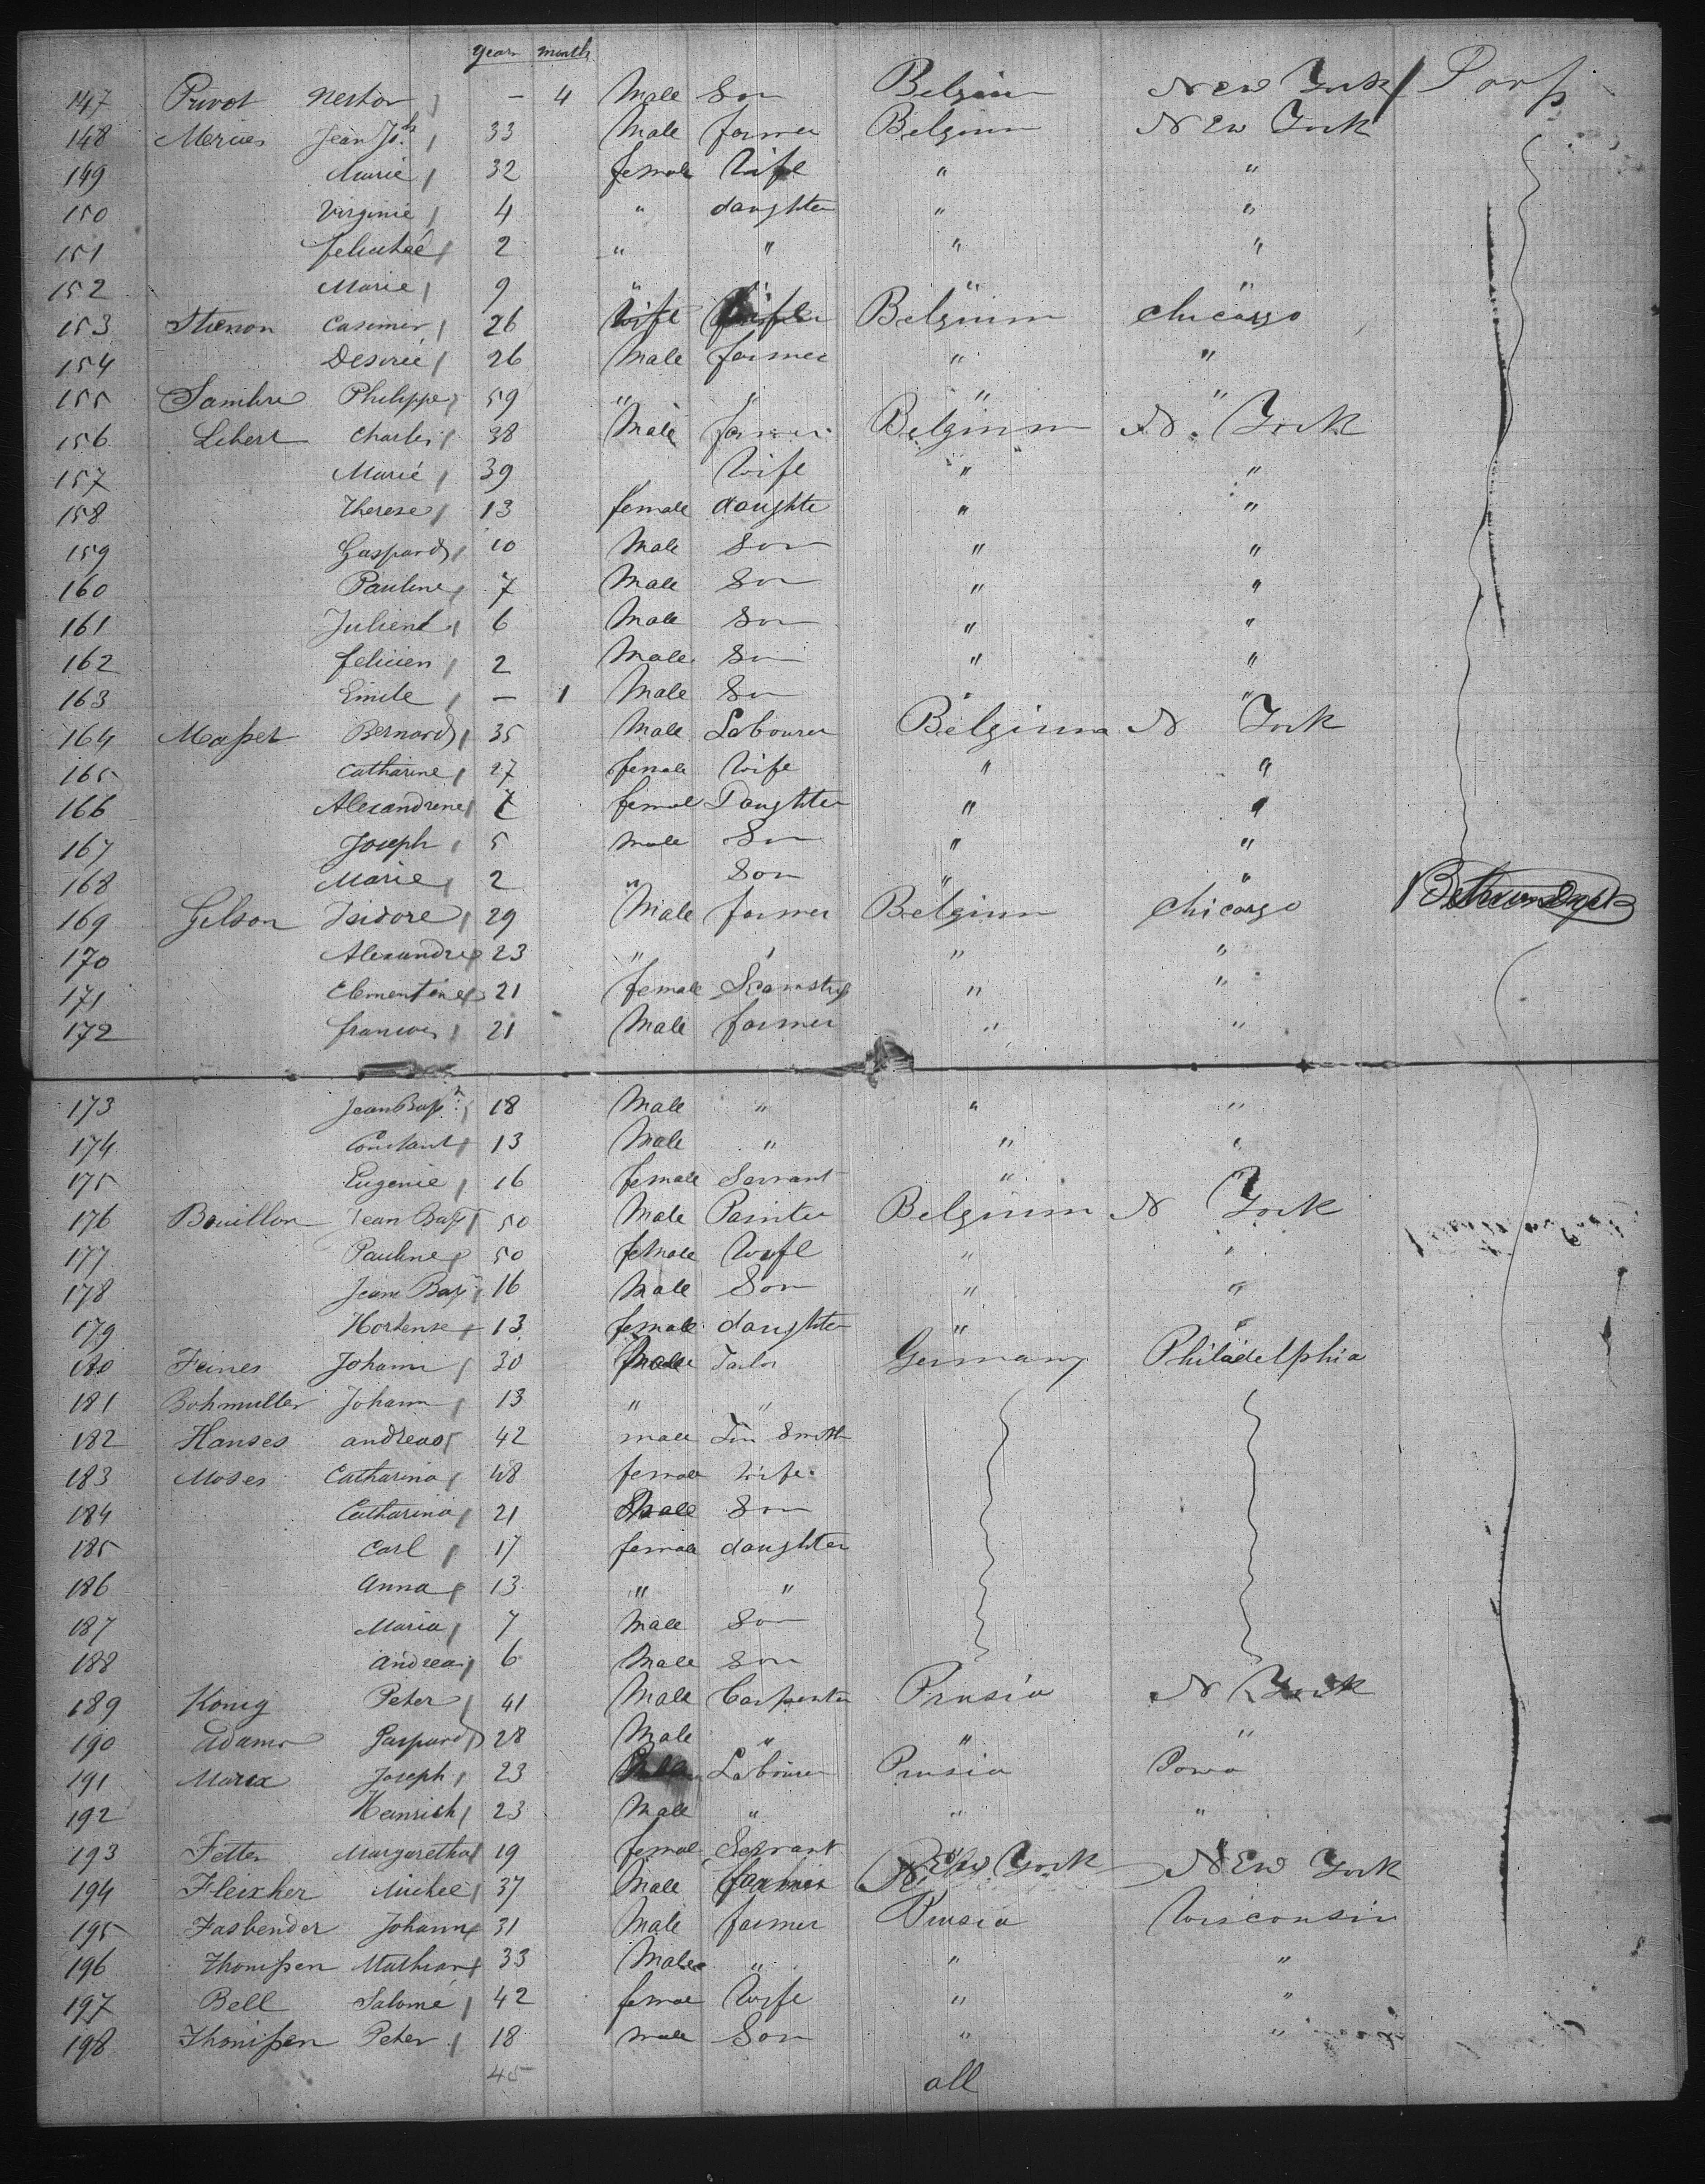 year month
147 Privot Nestor — 4 Male Son Belgium New York
148 Mercier Jean Jos.h 33 Male farmer Belgium New York
149 Marie 32 female Wife " "
150 Virginie 4 " daughter " "
151 2 " " " "
152 Marie 9 " " " "
153 Casimir 26 Wife Belgium Chicargo
154 Desirée 26 Male farmer " "
155 Sambre Philippe 59 " " " "
156 Lebert Charles 38 Male farmer Belgium N. York
157 Marie 39 Wife " "
158 Therese 13 female daughte " "
159 Gaspard 10 Male Son " "
160 Pauline 7 Male Son " "
161 Julien 6 Male Son " "
162 felicien 2 Male Son " "
163 Emile — 1 Male Son " "
164 Maßet Bernard 35 Male Labourer Belgium N York
165 Catharine 27 female Wife " "
166 Alexandrine 7 female Daughter " "
167 Joseph 5 male Son " "
168 Marie 2 " Son " "
169 Gilson Isidore 29 Male farmer Belginn Chicargo
170 Alexandre 23 " " " "
171 Clementine 21 female " "
172 francois 21 Male farmer " "
173 Jean Bapt 18 Male " " "
174 Constant 13 Male " " "
175 Eugenie 16 female Servant "
176 Bouillon Jean Bapt 50 Male Painter Belgium N York
177 Pauline 50 female Wife " "
178 Jean Bapt 16 Male Son " "
179 Hortense 13 female daughter " "
180 Feines Johann 30 Male Tailor Germany Philadelphia
181 Bohmuller Johann 13 " "
182 Hanses andreas 42 male Tin Smith
183 Moses Catharina 48 female Wife
184 Catharina 21 Male Son
185 Carl 17 female daughter
186 Anna 13 " "
187 Maria 7 Male Son
188 Andreas 6 Male Son
189 Konig Peter 41 Male Carpenter Prusia N York
190 Adams Gaspard 28 Male " " "
191 Marx Joseph 23 Labourer Prusia
192 Heinrich 23 Male " " "
193 Fetter Margaretha 19 female Servant New York New York
194 Fleixher Michel 37 Male
195 Fasbender Johann 31 Male farmer Prusia Wisconsin
196 Thonißen Mathias 33 Male " " "
197 Bell Salomé 42 female Wife " "
198 Thonißen Peter 18 male Son " "
45 all